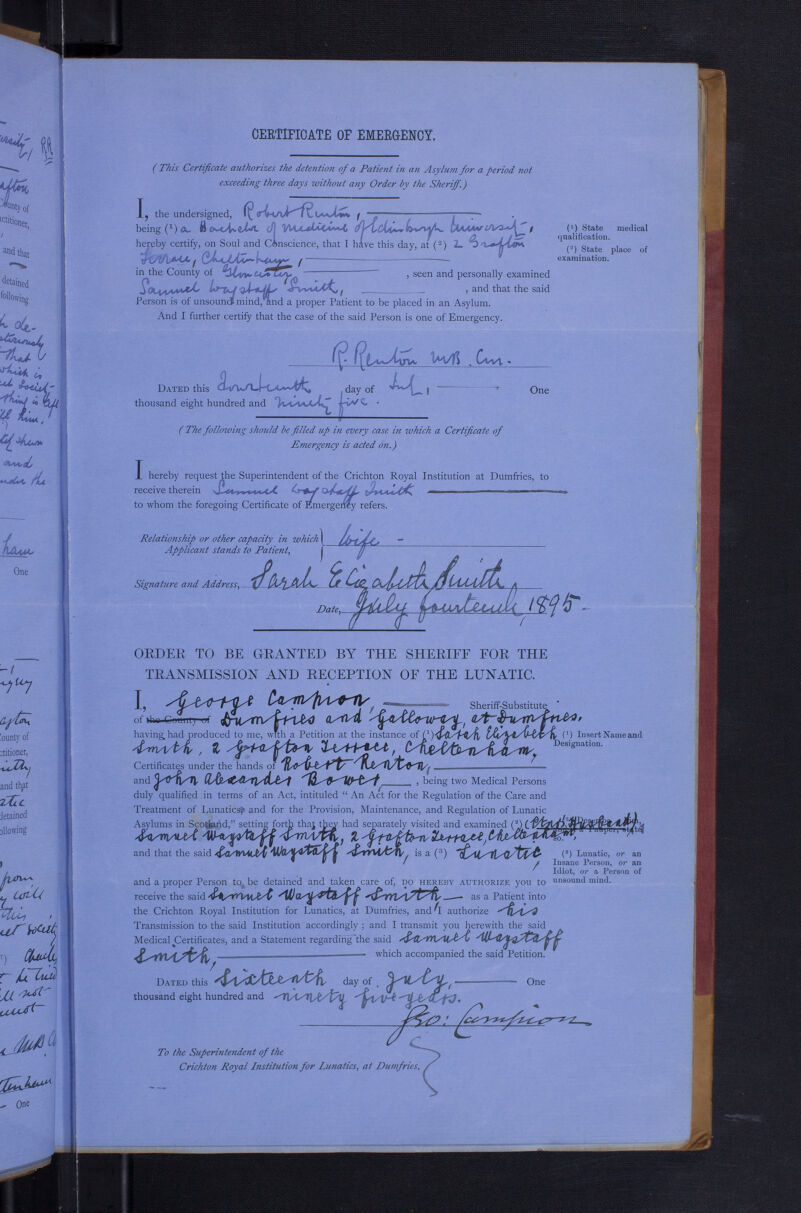 CERTIFICATE OF EMERGENCY.
(This Certificate authorizes the detention of a Patient in an Asylum for a period not
exceeding three days without any Order by the Sheriff.)
I, the undersigned, Robert Renton,
being (1) a Bachelor of Medicine of Edinburgh University,
(1) State medical
qualification.
hereby certify, on Soul and Conscience, that I have this day, at (2) 2 Grafton
(2) State place of
examination.
Terrace, Cheltenham,
in the County of Gloucester, , seen and personally examined
Samuel Wagstaff Smith, , and that the said
Person is of unsound mind, and a proper Patient to be placed in an Asylum.
And I further certify that the case of the said Person is one of Emergency.
R. Renton M.B. C.m.
DATED this fourteenth day of July, One
thousand eight hundred and ninety five.
(The following should be filled up in every case in which a Certificate of
Emergency is acted on.)
I hereby request the Superintendent of the Crichton Royal Institution at Dumfries, to
receive therein Samuel Wagstaff Smith
to whom the foregoing Certificate of Emergency refers.
Relationship or other capacity in which } Wife -
Applicant stands to Patient,
Signature and Address, Sarah Elizabeth Smith
Date, July fourteenth, 1895-
ORDER TO BE GRANTED BY THE SHERIFF FOR THE
TRANSMISSION AND RECEPTION OF THE LUNATIC.
I, George Campion, Sheriff-Substitute
of the County of Dumfries and Galloway, at Dumfries,
having had produced to me, with a Petition at the instance of (1) Sarah Elizabeth
(1) Insert Name and
Designation.
Smith, 2 Grafton Terrace, Cheltenham,
Certificates under the hands of Robert Renton,
and John Alexander Bower, , being two Medical Persons
duly qualified in terms of an Act, intituled "An Act for the Regulation of the Care and
Treatment of Lunatics, and for the Provision, Maintenance, and Regulation of Lunatic
Asylums in Scotland," setting forth that they had separately visited and examined (2) (Her Husband)
Samuel Wagstaff Smith, 2 Grafton Terrace, Cheltenham,
and that the said Samuel Wagstaff Smith, is a (3) Lunatic
(3) Lunatic, or an
Insane Person, or an
Idiot, or a Person of
unsound mind.
and a proper Person to be detained and taken care of, DO HEREBY AUTHORIZE you to
receive the said Samuel Wagstaff Smith as a Patient into
the Crichton Royal Institution for Lunatics, at Dumfries, and I authorize his
Transmission to the said Institution accordingly; and I transmit you herewith the said
Medical Certificates, and a Statement regarding the said Samuel Wagstaff
Smith, which accompanied the said Petition.
DATED this Sixteenth day of July, One
thousand eight hundred and ninety five years.
Geo: Campion
To the Superintendent of the
Crichton Royal Institution for Lunatics, at Dumfries.